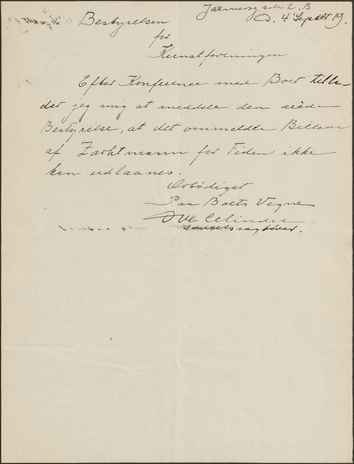 d. 4 Septbr 19.
Bestyrelsen
for
Kunstforeningen
Efter Konference med Boet tilla-
der jeg mig at meddele den ærede
Bestyrelse, at det ommeldte Billede
af Zachtmann for Tiden ikke
kan udlaanes.
Ærbødigst
Paa Boets Vegne